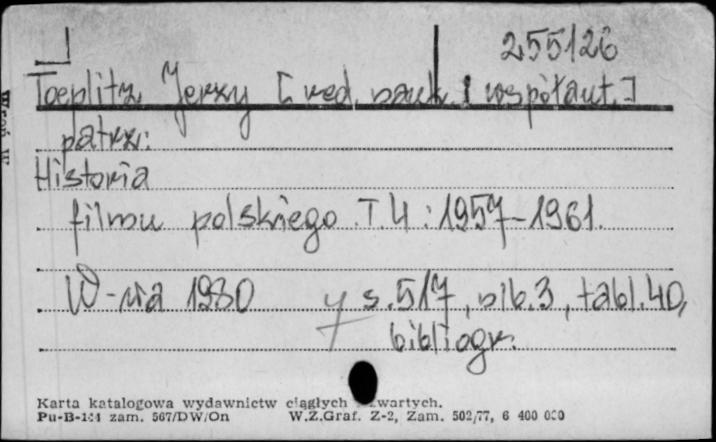 255126
Toeplitz Jerzy [red. nauk. i współaut.]
patrz:
Historia
filmu polskiego. T.4: 1957-1961.
W-wa 1980 s. 517, nlb. 3, tabl. 40,
bibliogr.
Karta katalogowa wydawnictw ciągłych zwartych.
Pu-B-141 zam. 567/DW/On W.Z.Graf. Z-2, Zam. 502/77, 6 400 000